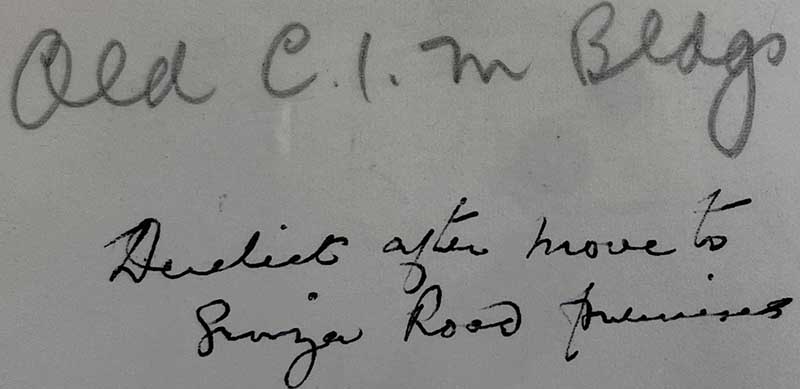 Old C.I.M Bldgs
Derelict after move to
Road premises